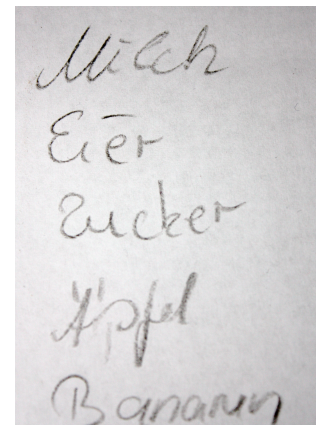 Milch
Eier
Zucker
Äpfel
Bananen